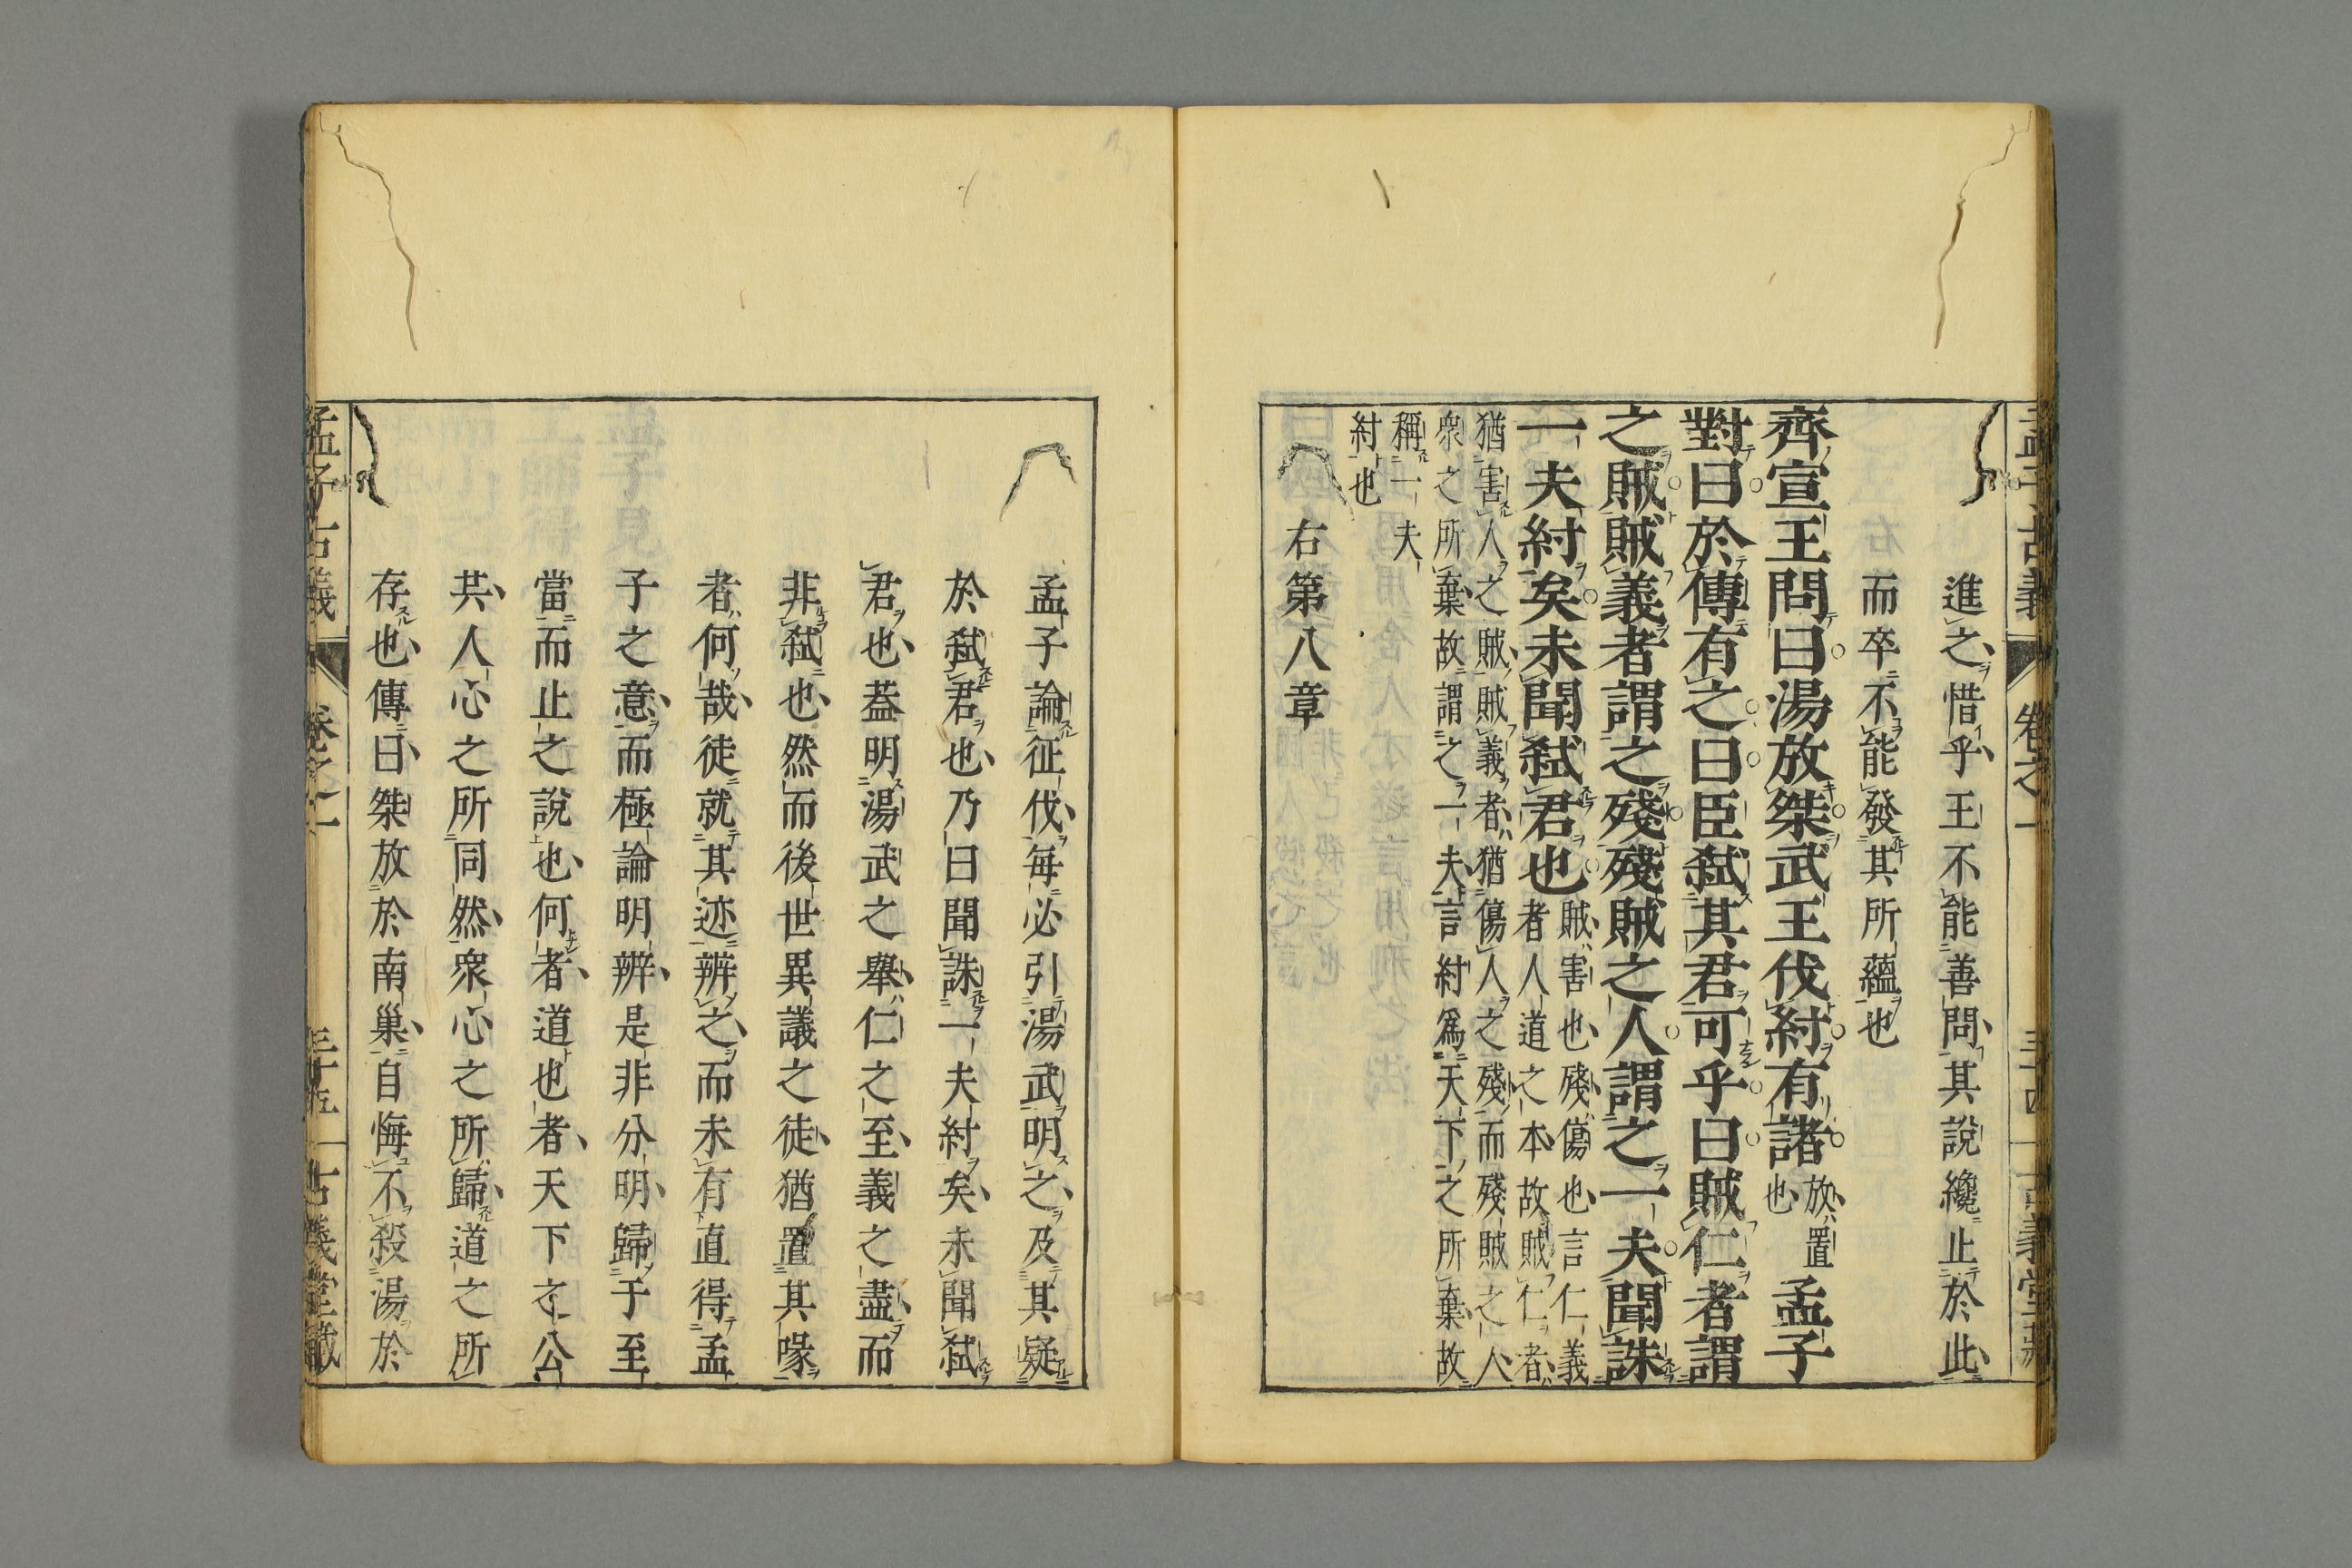 孟子古義 卷之一 三十四 古義堂藏
進之惜乎王不能善問其說纔止於此
而卒不能發其所蘊也
齊宣王問曰湯放桀武王伐紂有諸放置也孟子
對曰於傳有之曰臣弑其君可乎曰賊仁者謂
之賊賊義者謂之殘殘賊之人謂之一夫聞誅
一夫紂矣未聞弑君也賊害也殘傷也言仁義
者人道之本故賊仁者
猶害人之賊賊義者猶傷人之殘而殘賊之人
衆之所棄故謂之一夫言紂爲天下之所棄故
稱一夫
紂也
右第八章
孟子論征伐每必引湯武明之及其疑
於弑君也乃曰聞誅一夫紂矣未聞弑
君也蓋明湯武之舉仁之至義之盡而
非弑也然而後世異議之徒猶置其喙
者何哉徒就其迹辨之而未有直得孟
子之意而極論明辨是非分明歸于至
當而止之說也何者道也者天下之公
共人心之所同然衆心之所歸道之所
存也傳曰桀放於南巢自悔不殺湯於
孟子古義 卷之一 三十五 古義堂藏